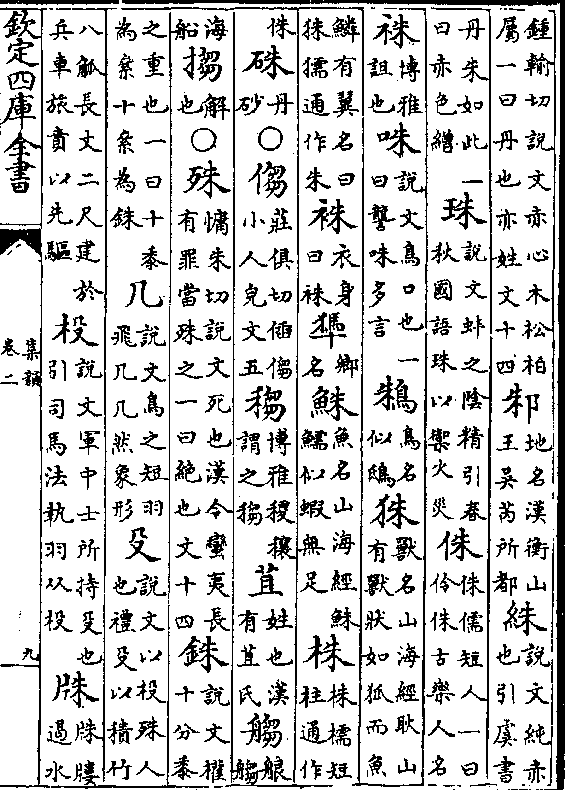 鍾輸切說文赤心木松柏屬一曰丹也亦姓文十四邾地名漢衡山王吳芮所都絑說文純赤也引虞書
丹朱如此一曰赤色繒珠說文蚌之陰精引春秋國語珠以禦火災侏侏儒短人一曰伶侏古樂人名
祩博雅詛也咮說文鳥口也一曰讋咮多言鴸鳥名似鴟獸名山海經耿山有獸狀如狐而魚
鱗有翼名曰獳通作朱袾衣身曰袾鄉名鮢魚名山海經鮢鱬似蝦無足株株檽短柱通作
侏硃丹砂○㑳莊俱切偛㑳小人皃文五博雅稷穰謂之苴姓也漢有苴氏艆
海船搊解也○殊慵朱切說文死也漢令蠻夷長有罪當殊之一曰絕也文十四銖說文權十分黍
之重也一曰十黍為絫十絫為銖几說文鳥之短羽飛几几然象形殳說文以杸殊人也禮殳以積竹
八觚長丈二尺建於兵車旅賁以先驅杸說文軍中士所持殳也引司馬法執羽以杸過水
欽定四庫全書
集韻
卷二
九